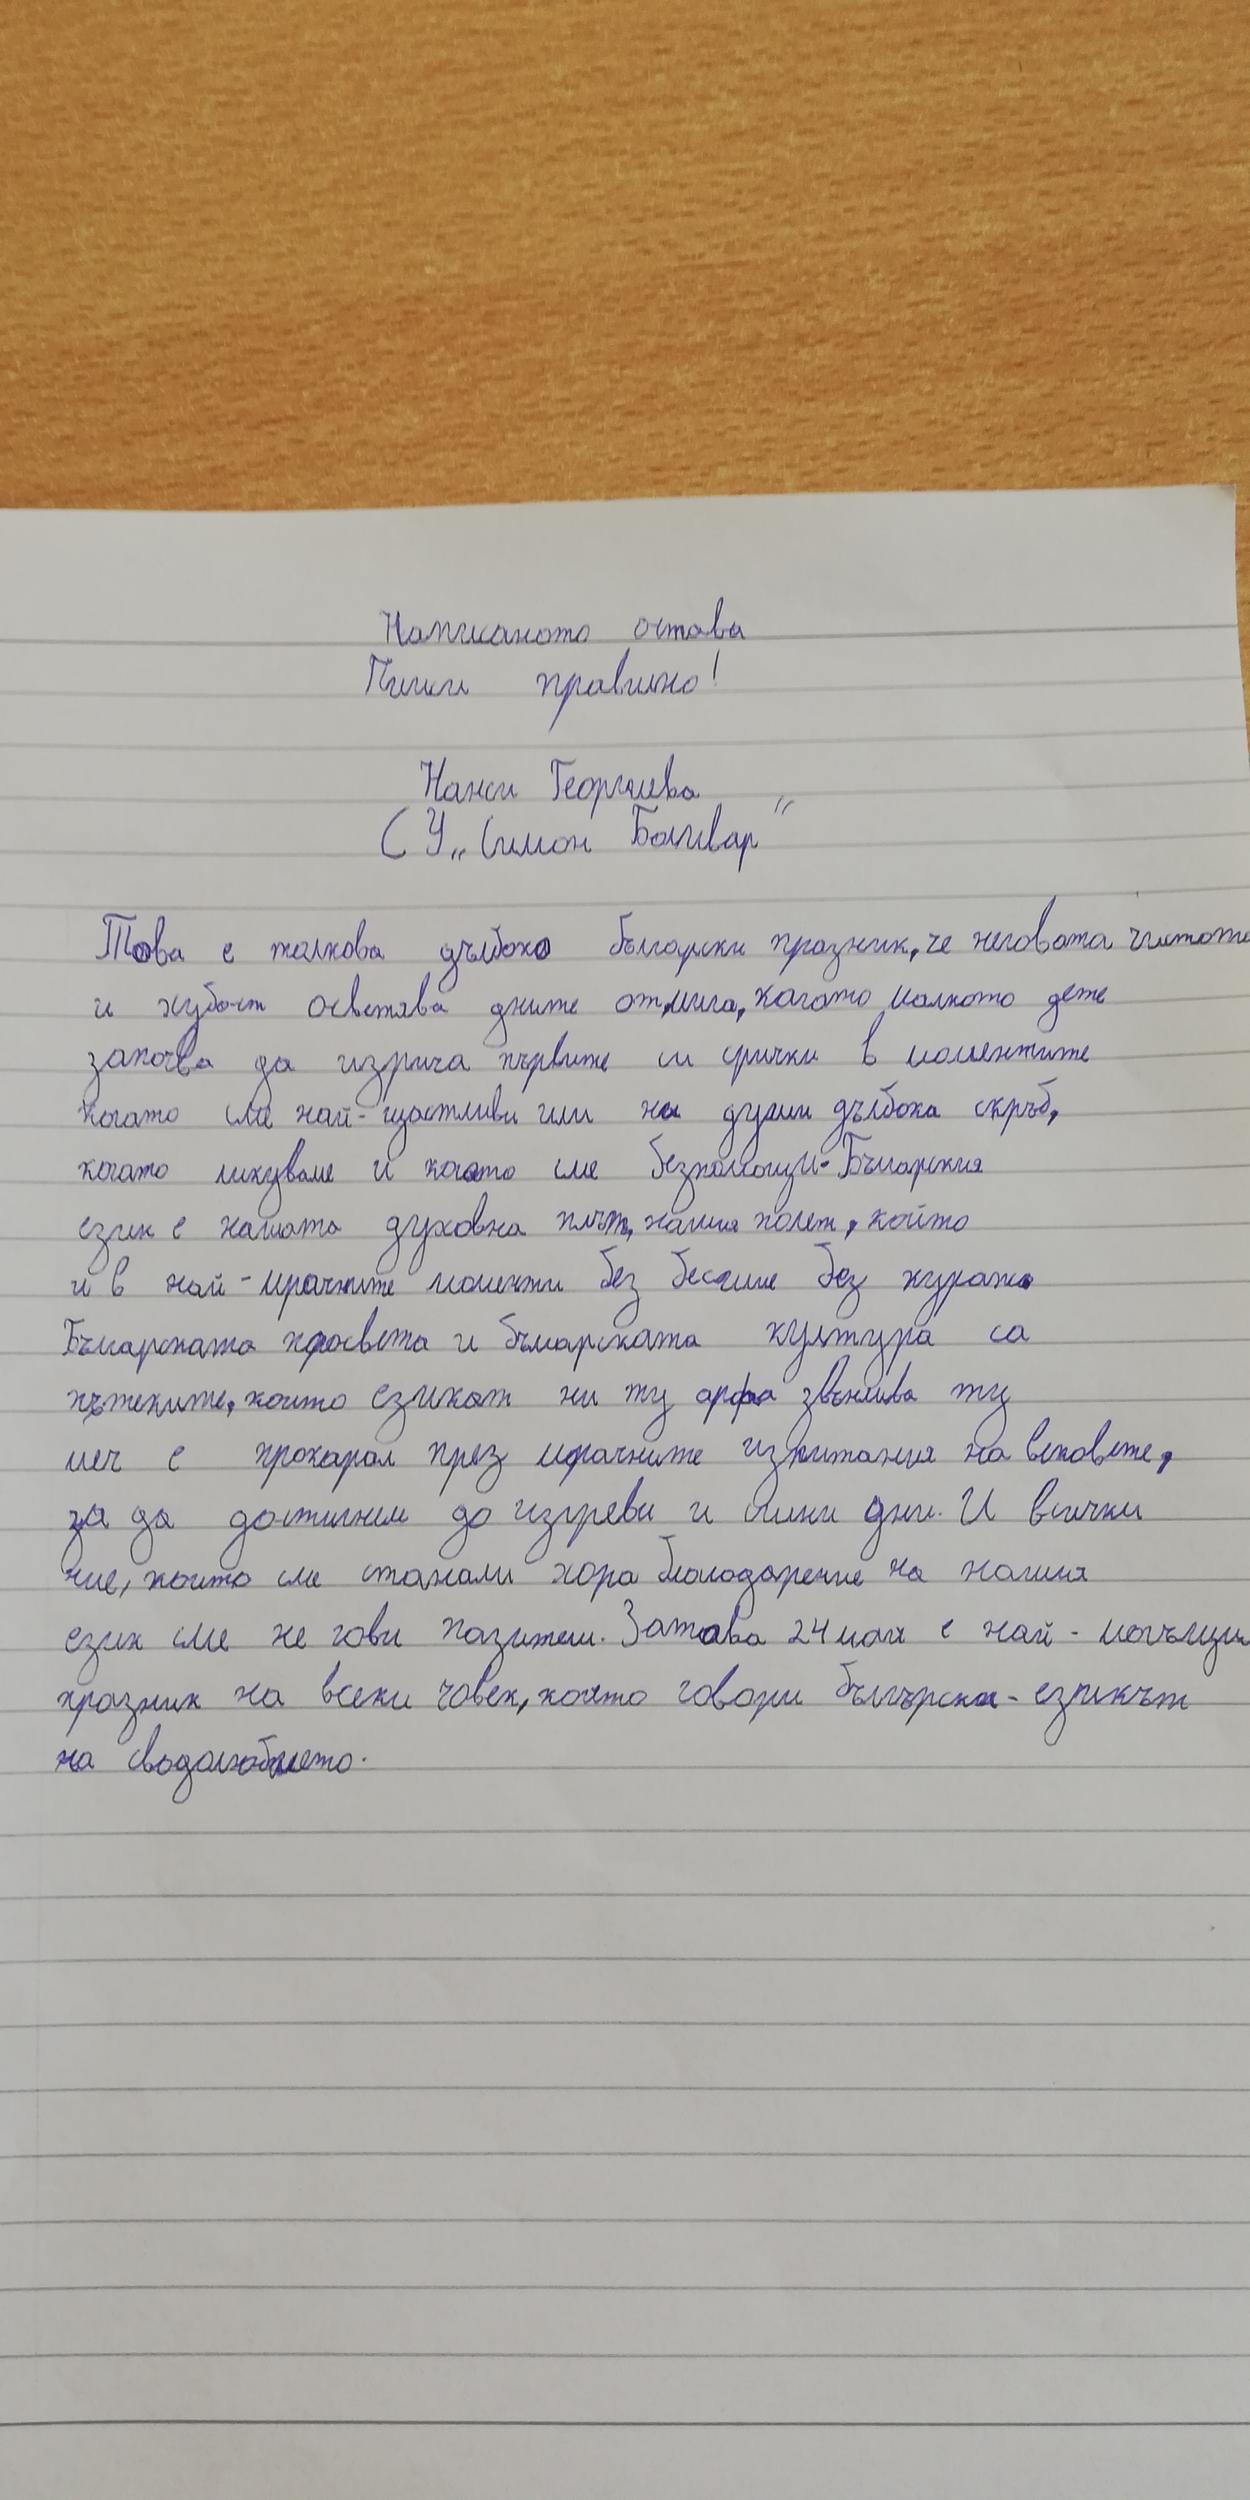 Написаното остава
Пиши правилно!
Нанси Георгиева
СУ „Симон Боливар"
Това е толкова дълбоко български празник, че неговата чистота
и хубост осветява дните от мига, когато малкото дете
започва да изрича първите си срички в моментите
когато сме най-щастливи или ни души дълбока скръб,
когато ликуваме и когато сме безпомощни. Българския
език е нашата духовна плът, нашия полет, който
и в най-мрачните моменти без бесилие без куража
Българската просвета и българската култура са
пътеките, които езикат ни ту арфа звънлива ту
меч е прокарал през мрачните изпитания на вековете,
за да достигнем до изгреви и сини дни. И всички
ние, които сме станали хора благодарение на нашия
език сме не гови пазители. Затова 24 май е най-могъщия
празник на всеки човек, който говори бългърски - езикът
на сводолюбието.